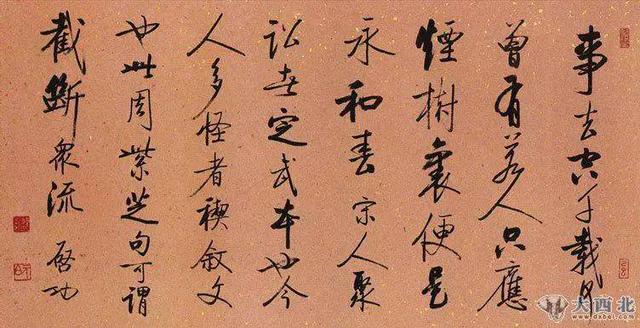 事去空千載
曾有若人只應
煙樹裏便是
永和春 宋人聚
訟者定武本也今
人多怪者禊敘文
也此周紫芝句可謂
截斷眾流 啓功
大西北